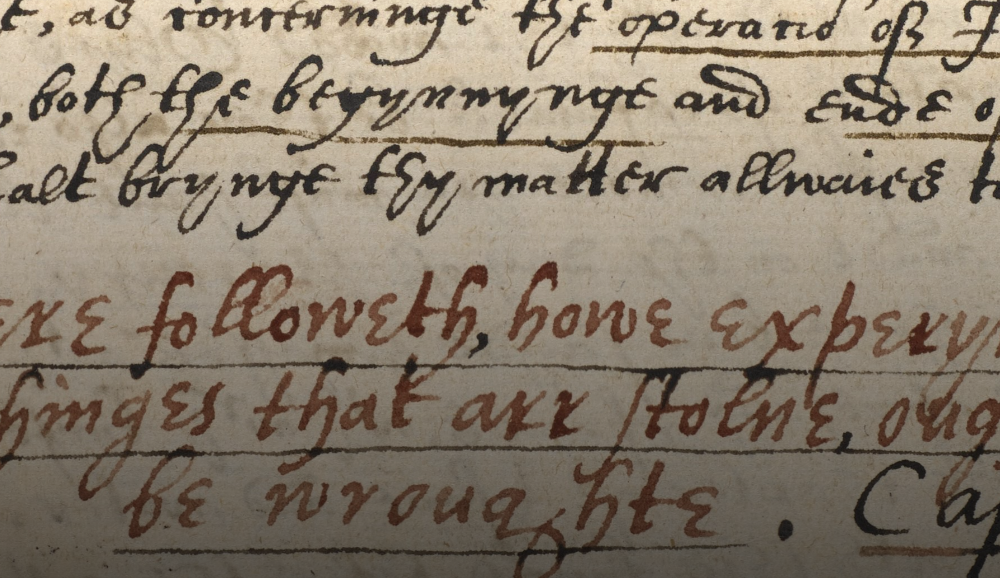 , as concerninge the operatio of
, both the begynnynge and ende
alt brynge thy matter allwaies
ere followeth, howe expery
hinges that arr stolne, oug
be wroughte . Cap